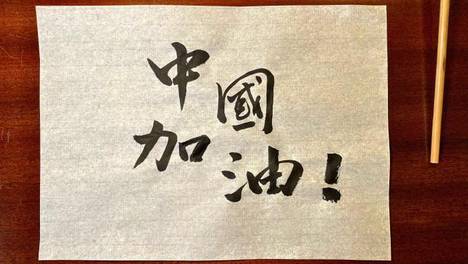 中國
加油！